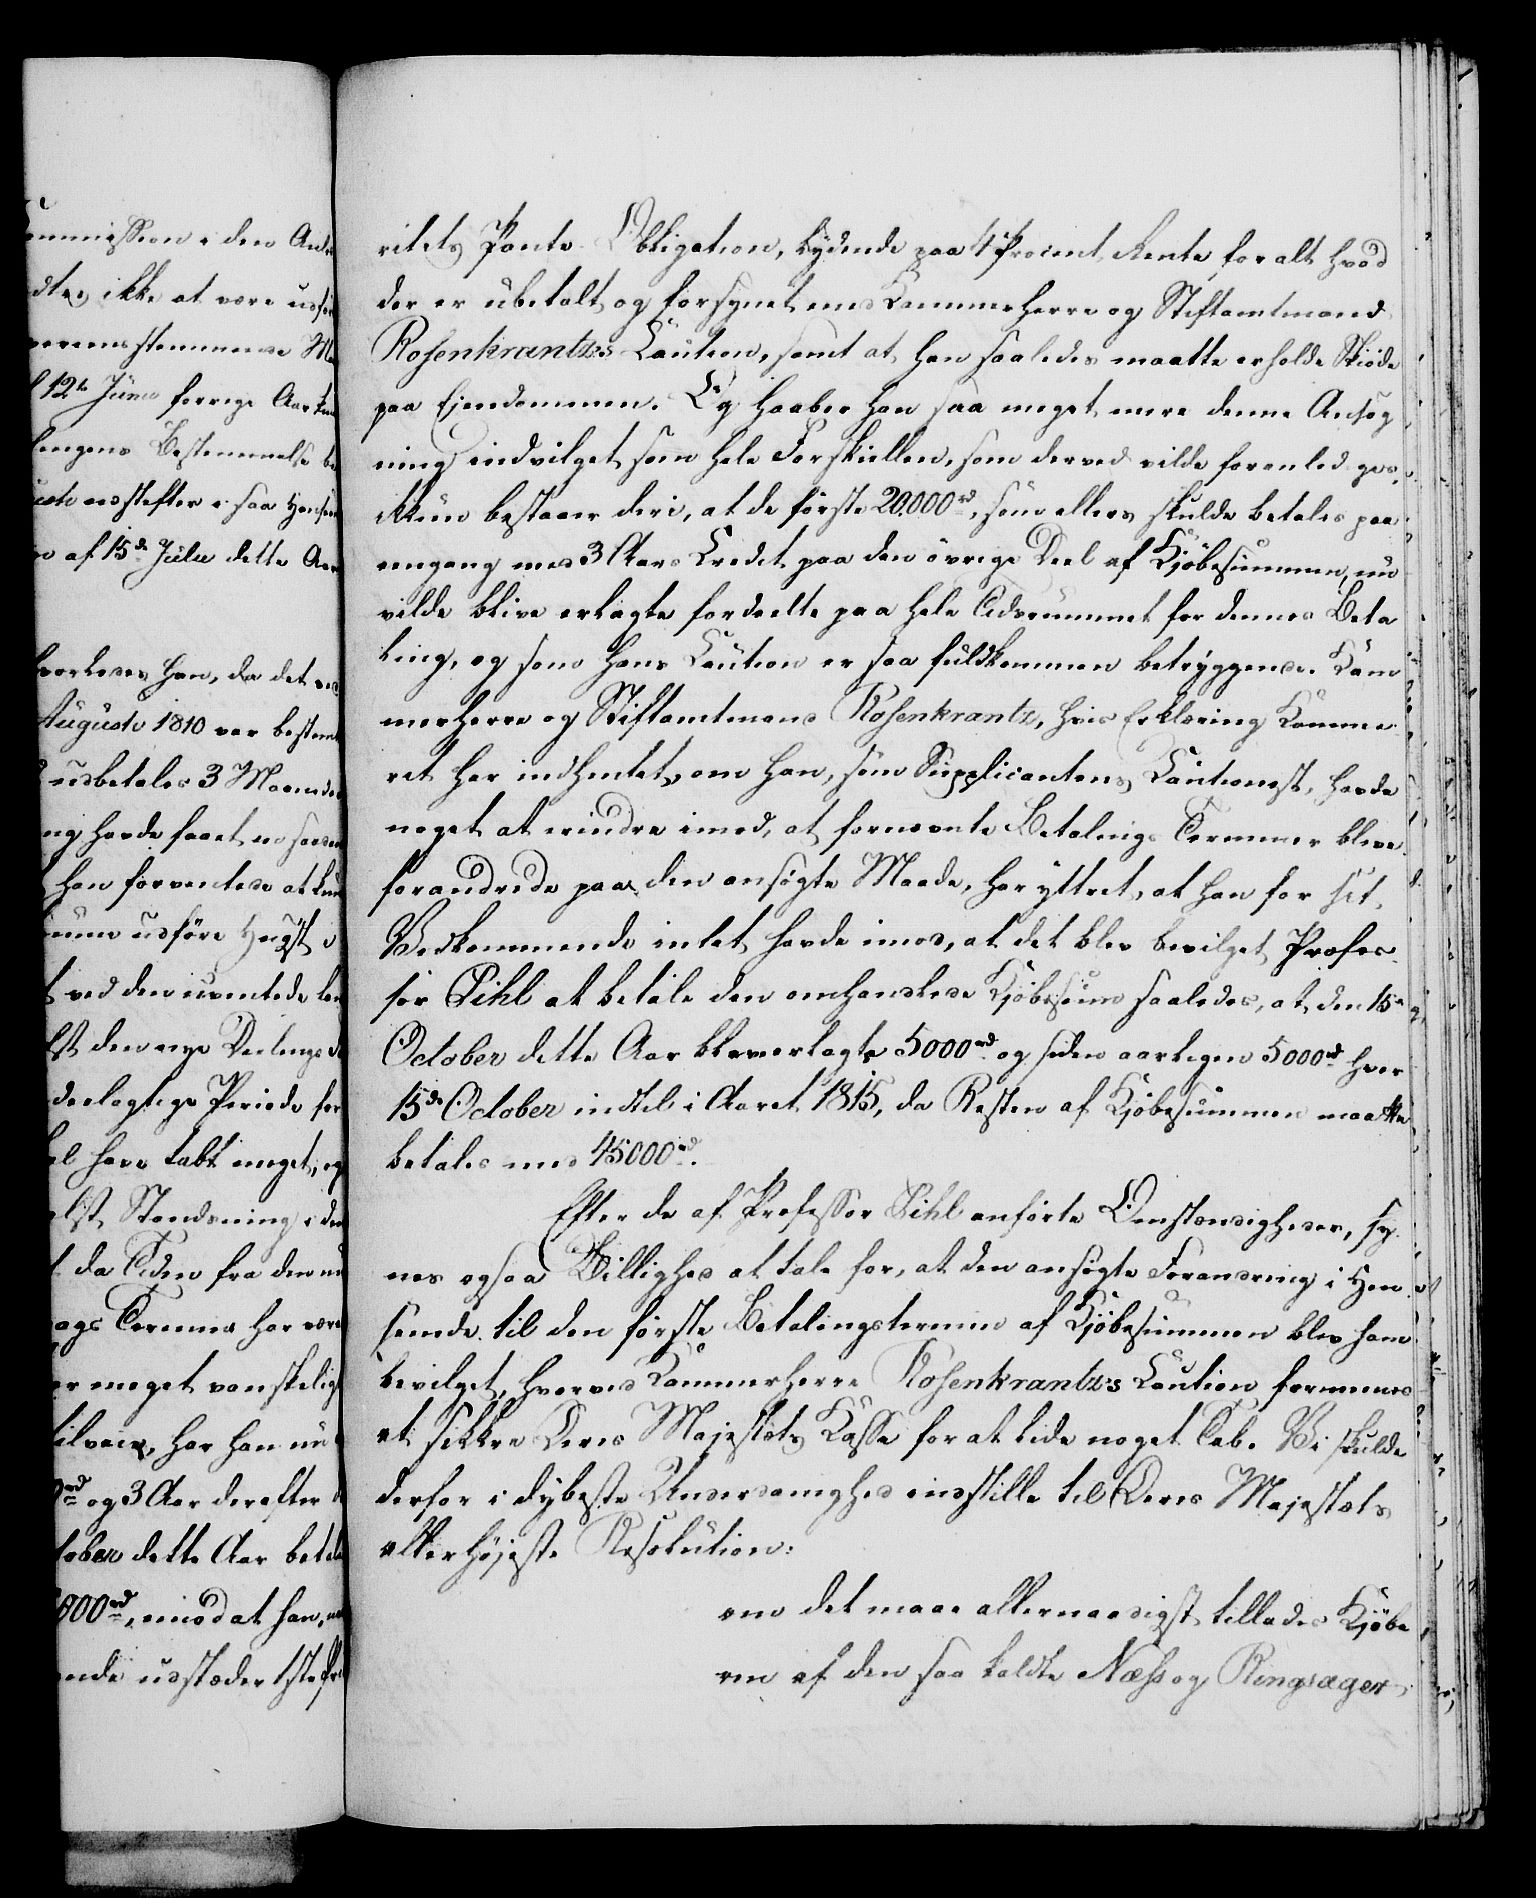 ommission i den And
dtes ikke at være udfør
overensstemmende Ma
12te Junii forrige Aar kun
lingens Bestemmelse be
udstæfter i saa Hensee
af 15de Julii dette Aar
hvorledes han, da det ved
Augusti 1810 var bestemt
udbetales 3 Maaneder
ng havde faaet
han forventede at kun
unne udføre Hugst i
ved den ventede
den nye Deelings
deelagtige Periode for
have tabt meget, og
Standsning i den
da Tiden fra den nu
ags Termin har være
er meget vanskelig
har han nu
rd og 3 Aar derefter
tober dette Aar betale
000rd, imod at han,
ende udstæder 1ste Pri
ritets Pante Obligation, lydende paa 4 Procent Rente for alt hvad
der er ubetalt og forsynet med Kammerherre og Stiftamtmand
Rosenkrantzes Caution, samt at han saaledes maatte erholde Skiøde
paa Ejendommen. Og haaber han saa meget mere denne Ansøg
ning indvilget, som hele Forskiellen, som derved vilde foranlediges,
ikkun bestaaer deri, at de første 20.000rd, som ellers skulde betales paa
eengang med 3 Aars Credit paa den øvrige Deel af Kjøbesummen, nu
vilde blive erlagte fordeelte paa hele Tidsrummet for dennes Beta
ling, og som hans Caution er saa fuldkommen betryggende. Kam
merherre og Stiftamtmand Rosenkrantz, hvis Erklæring Kamme
ret har indhentet, om han, som Supplicantens Cautionist, havde
noget at erindre imod, at fornævnte Betalings Terminer bleve
forandrede paa den ansøgte Maade, har yttret, at han for sit
Vedkommende intet havde imod, at det blev bevilget Profes
sor Pihl at betale den omhandlede Kjøbesum saaledes, at den 15de
October dette Aar blev erlagte 5000rd og siden aarligen 5000rd hver
15de October indtil i Aaret 1815, da Resten af Kjøbesummen maatte
betales med 45000rd.
Efter de af Professor Pihl anførte Omstændigheder, sy
nes ogsaa Billighed at tale for, at den ansøgte Forandring i Hen
seende til den første Betalingstermin af Kjøbesummen blev ham
bevilget, hvorved Kammerherre Rosenkrantz's Caution formenes
at sikkre Deres Majestæts Kasse for at lide noget Tab. Vi skulde
derfor i dybeste Underdanighed indstille til Deres Majestæts
allerhøjeste Resolution:
om det maae allernaadigst tillades Kjøbe
ren af den saa kaldte Næss og Ringsager